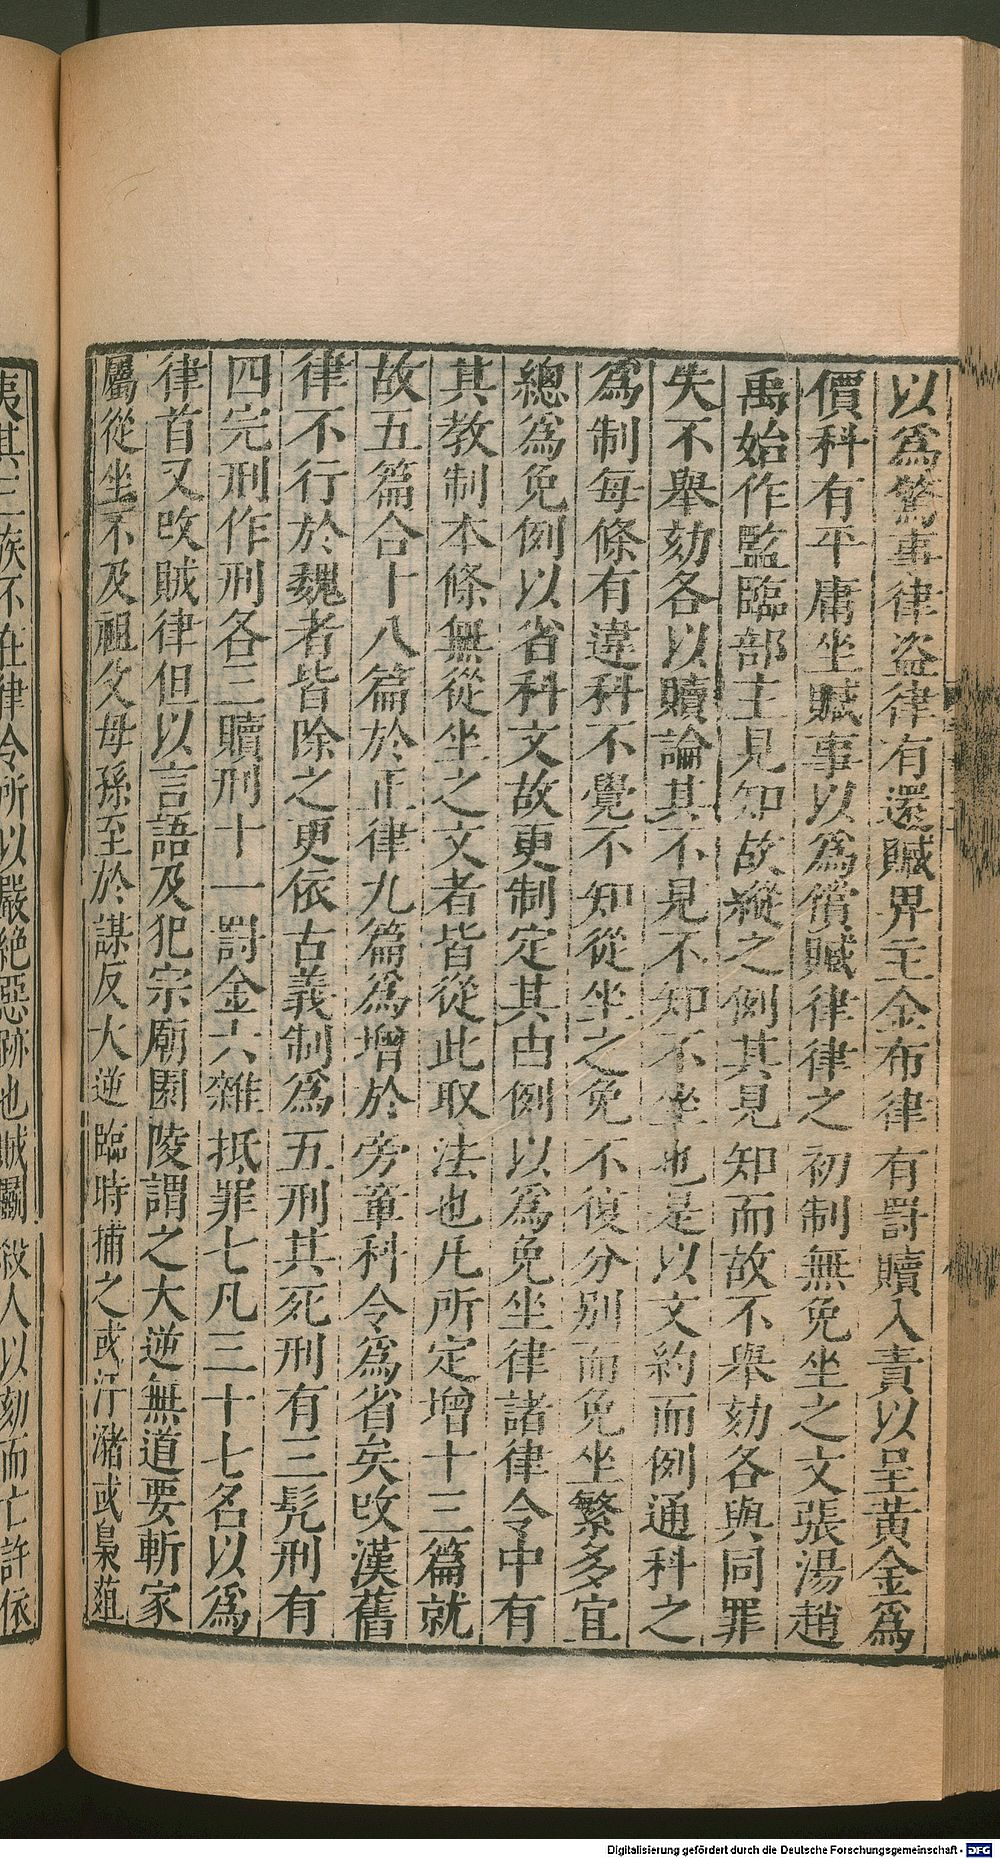 以爲驚事律盗律有還贓畀主金布律有罰贖入責以呈黃金爲
價科有平庸坐贓事以爲償贓律律之初制無免坐之文張湯趙
禹始作監臨部主見知故縱之例其見知而故不舉劾各與同罪
失不舉劾各以贖論其不見不知不坐也是以文約而例通科之
爲制每條有違科不覺不知從坐之免不復分别而免坐繁多宜
總爲免例以省科文故更制定其由例以爲免坐律諸律令中有
其教制本條無從坐之文者皆從此取法也凡所定增十三篇就
故五篇合十八篇於正律九篇爲增於旁章科令爲省矣改漢舊
律不行於魏者皆除之更依古義制爲五刑其死刑有三髡刑有
四完刑作刑各三贖刑十一罰金六雜抵罪七凡三十七名以爲
律首又改賊律但以言語及犯宗廟園陵謂之大逆無道要斬家
屬從坐不及祖父母孫至於謀反大逆臨時捕之或汙瀦或梟菹
夷其三族不在律令所以嚴絶惡跡也賊鬭殺人以劾而亡許依
Digitalisierung gefördert durch die Deutsche Forschungsgemeinschaft - DFG